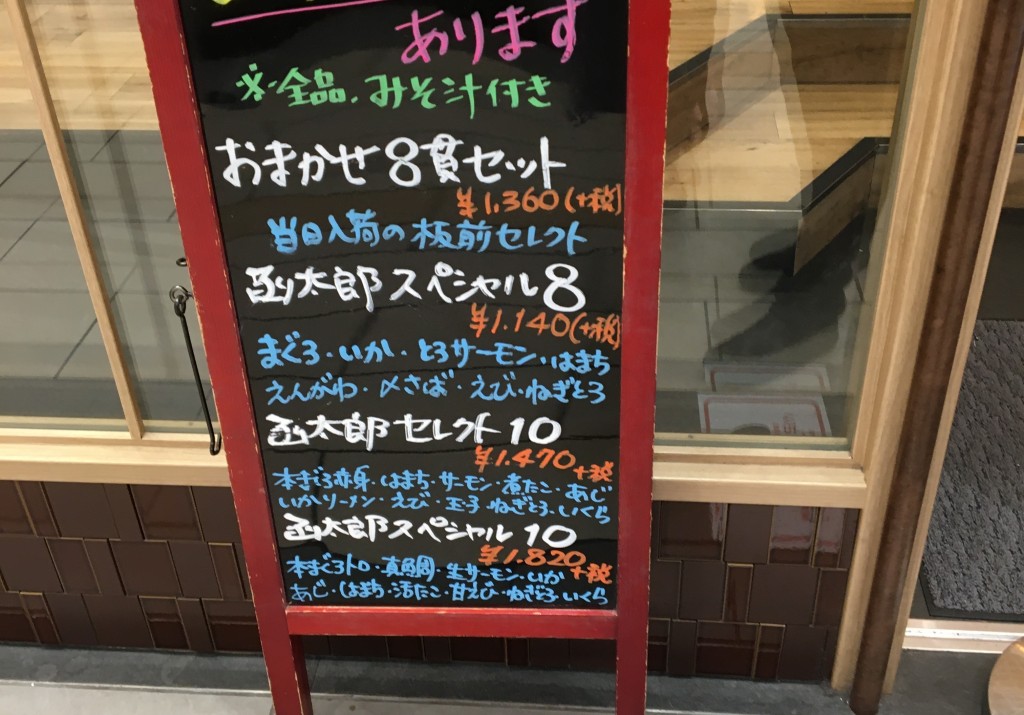 あります
※全品、みそ汁付き
おまかせ8貫セット
¥1,360(+税)
当日入荷の板前セレクト
函太郎スペシャル8
¥1,140(+税)
まぐろ・いか・とろサーモン・はまち
えんがわ・〆さば・えび・ねぎとろ
函太郎セレクト10
¥1,470+税
本まぐろ赤身・はまち・サーモン・煮たこ・あじ
いかソーメン・えび・玉子・ねぎとろ・いくら
函太郎スペシャル10
¥1,820+税
本まぐろトロ・真鯛・生サーモン・いか
あじ・はまち・活たこ・甘えび・ねぎとろ・いくら